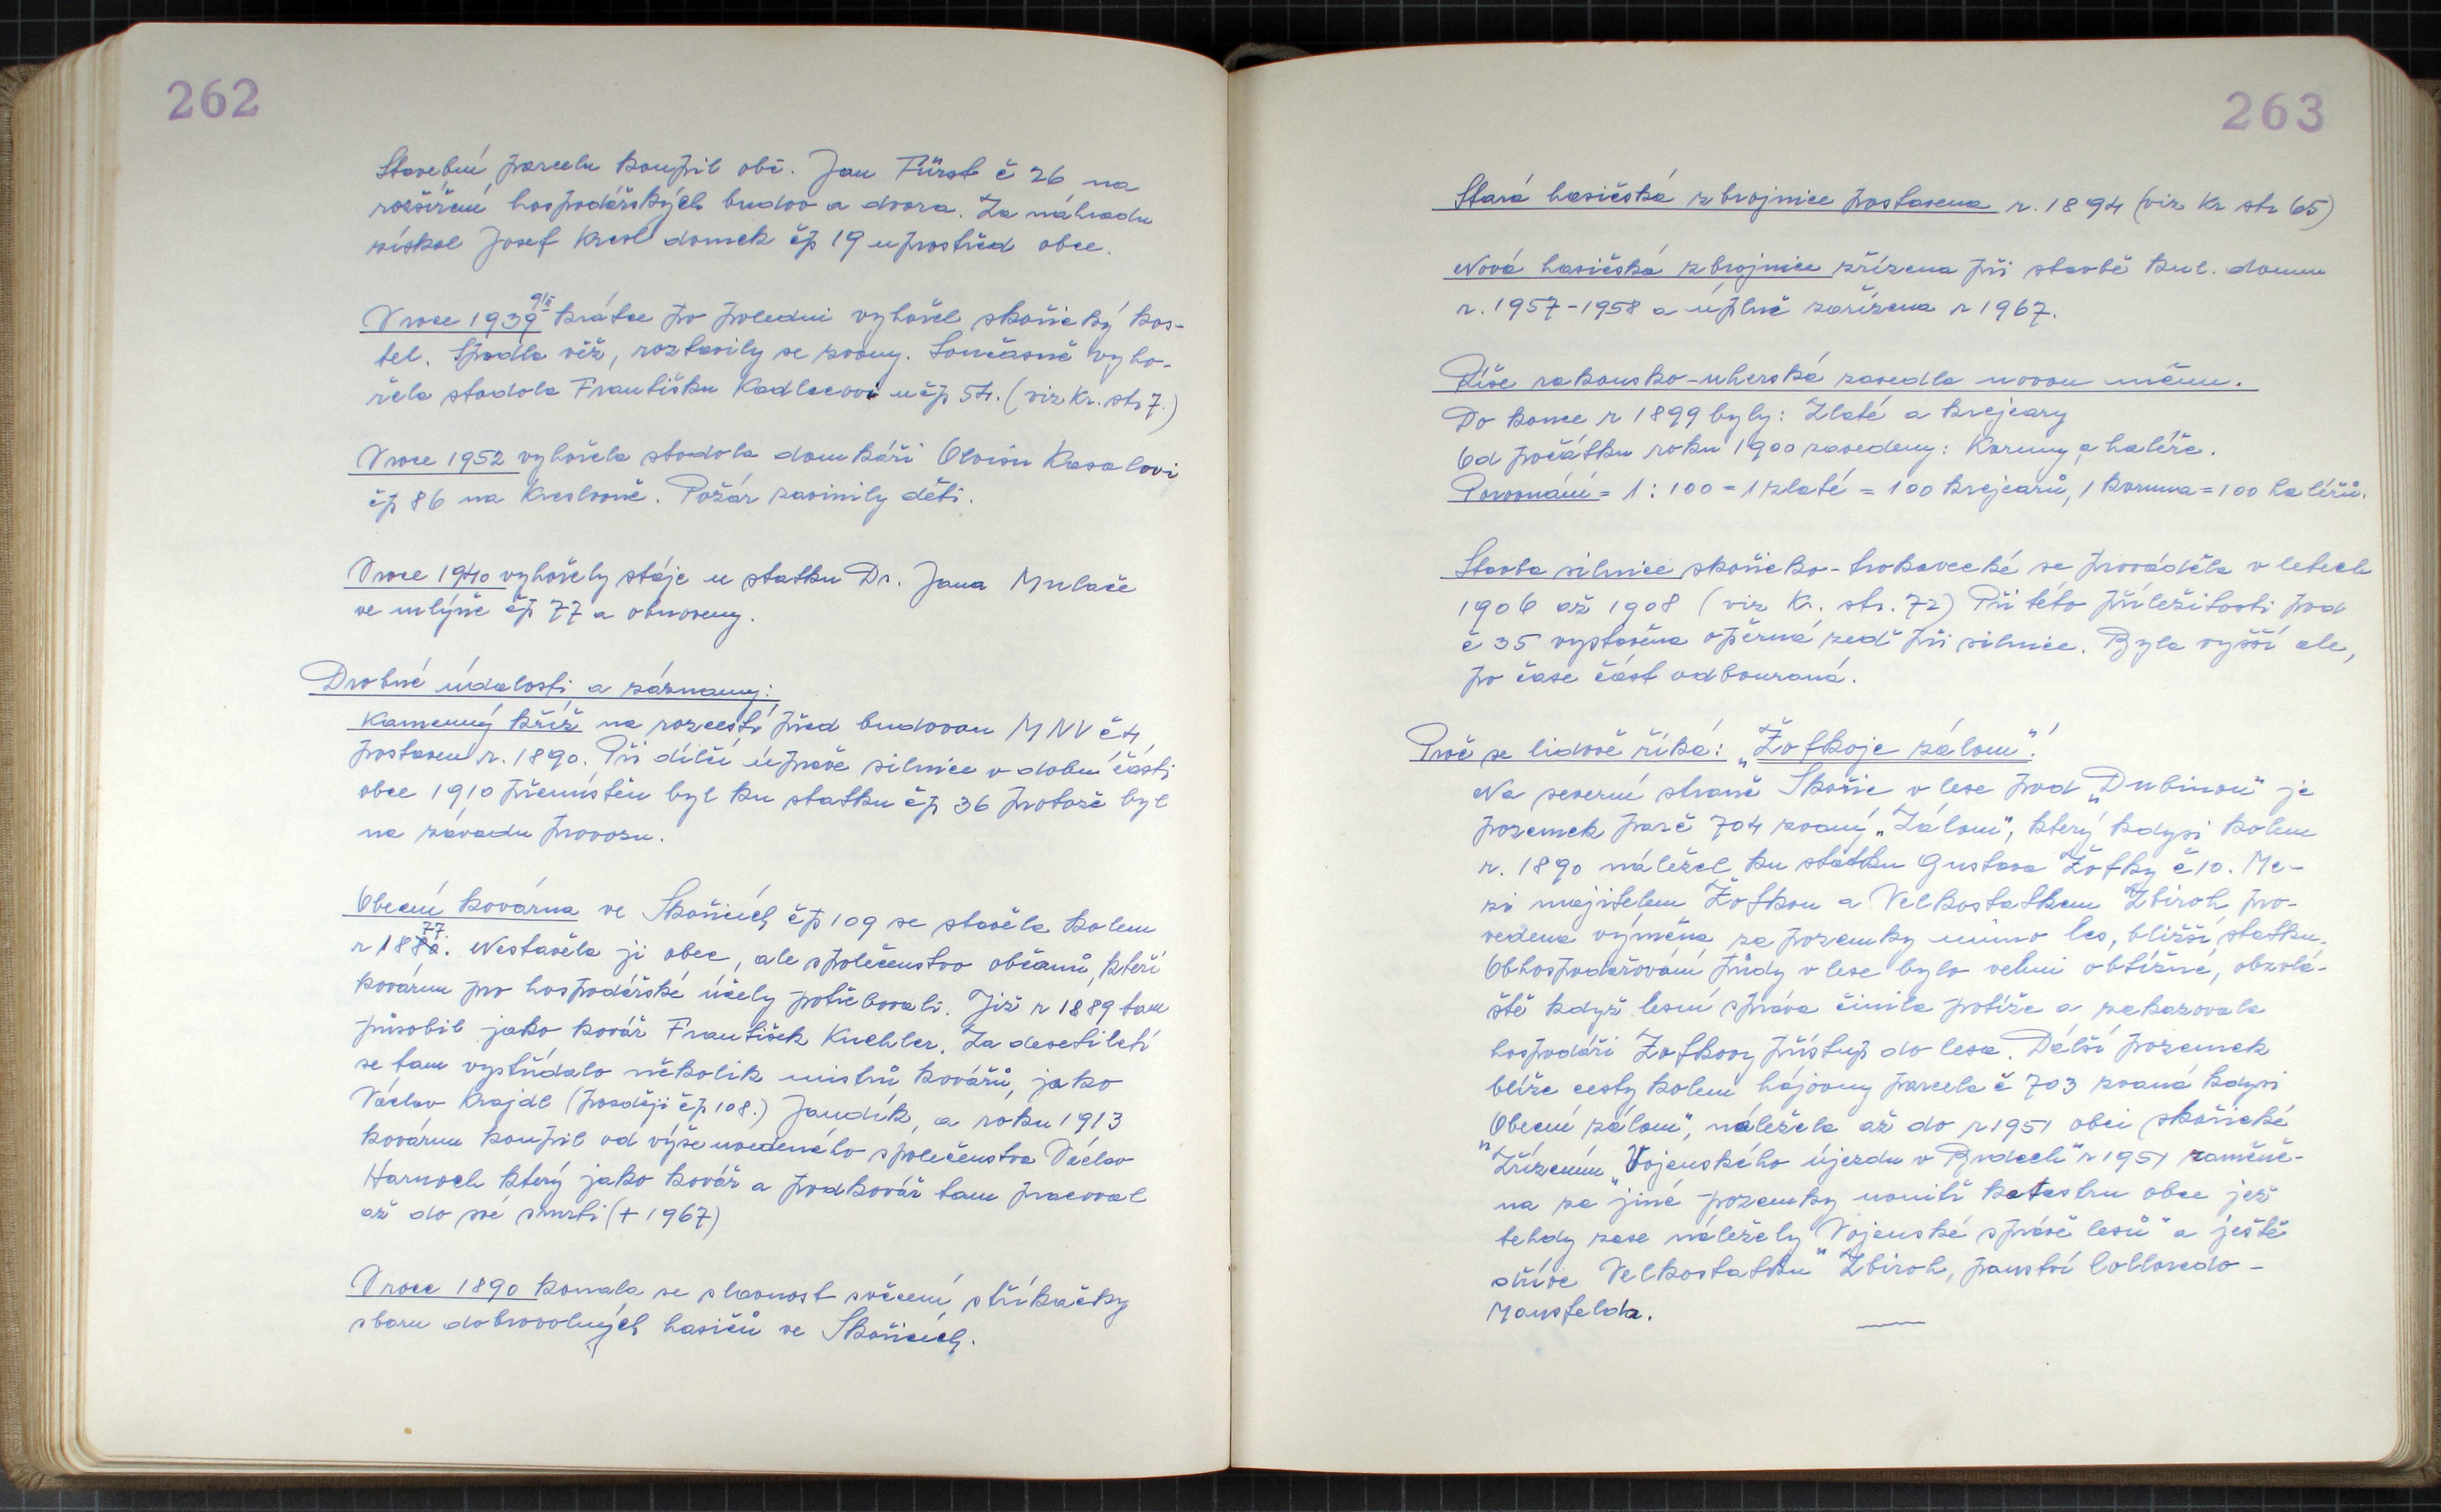 262
Stavební parcelu koupil obč. Jan Fürst č 26 na
rozšíření hospodářských budov a dvora. Za náhradu
získal Josef Kresl domek čp 19 uprostřed obce.
V roce 1939 9/II krátce po poledni vyhořel skořický kos-
tel. Spadla věž, roztavily se zvony. Současně vyho-
řela stodola Františku Kadlecovi u čp 54. (viz Kr. str 7.)
V roce 1952 vyhořela stodola domkáři Aloisu Kasalovi
čp 86 na Kreslovně. Požár zavinily děti.
V roce 1940 vyhořely stáje u statku Dr. Jana Mulače
ve mlýně čp 77 a obnoveny.
Drobné údalosti a záznamy:
Kamenný kříž na rozcestí před budovou MNV č 4
postaven r. 1890. Při dílčí úpravě silnice v dolní části
obce 1910 přemístěn byl ku statku čp 36 protože byl
na závadu provozu.
Obecní kovárna ve Skořicích čp 109 se stavěla kolem
r 1877. Nestavěla ji obec, ale společenstvo občanů, kteří
kovárnu pro hospodářské účely potřebovali. Již r 1889 tam
působil jako kovář František Kuchler. Za desetiletí
se tam vystřídalo několik mistrů kovářů, jako
Václav Krajdl (později čp 108.) Jandík, a roku 1913
kovárnu koupil od výše uvedeného společenstva Václav
Harnoch který jako kovář a podkovář tam pracoval
až do své smrti (+ 1967)
V roce 1890 konala se slavnost svěcení stříkačky
sboru dobrovolných hasičů ve Skořicích.
263
Stará hasičská zbrojnice postavena r. 1894 (viz Kr str 65)
Nová hasičská zbrojnice zřízena při stavbě kul. domu
r. 1957-1958 a úplně zařízena r 1967.
Říše rakousko-uherská zavedla novou měnu.
Do konce r 1899 byly: Zlaté a krejcary
Od počátku roku 1900 zavedeny: Koruny a haléře.
Porovnání = 1:100 = 1 zlaté = 100 krejcarů, 1 koruna = 100 haléřů.
Stavba silnice skořicko-trokavecké se prováděla v letech
1906 až 1908 (viz Kr. str. 72) Při této příležitosti pod
č 35 vystavěna opěrná zeď při silnice. Byla vyšší ale,
po čase část odbouraná.
Proč se lidově říká: „Žofkoje zálom"!
Na severní straně Skořic v lese pod „Dubinou" je
pozemek parč 704 zvaný „Zálom", který kdysi kolem
r. 1890 náležel ku statku Gustava Žofky č 10. Me-
zi majitelem Žofkou a Velkostatkem Zbiroh pro-
vedena výměna za pozemky mimo les, bližší statku.
Obhospodařování půdy v lese bylo velmi obtížné, obzvlá-
ště když lesní správa činila potíže a zakazovala
hospodáři Žofkovy přístup do lesa. Další pozemek
blíže cesty kolem hájovny parcela č 703 zvaná kdysi
„Obecní zálom", náležela až do r 1951 obci skořické
Zřízením „Vojenského újezdu v Brdech" r 1951 zaměně-
na za jiné pozemky uvnitř katastru obce jež
tehdy zase náležely „Vojenské správě lesů" a ještě
dříve „Velkostatku" Zbiroh, panství Colloredo-
Mansfelda.